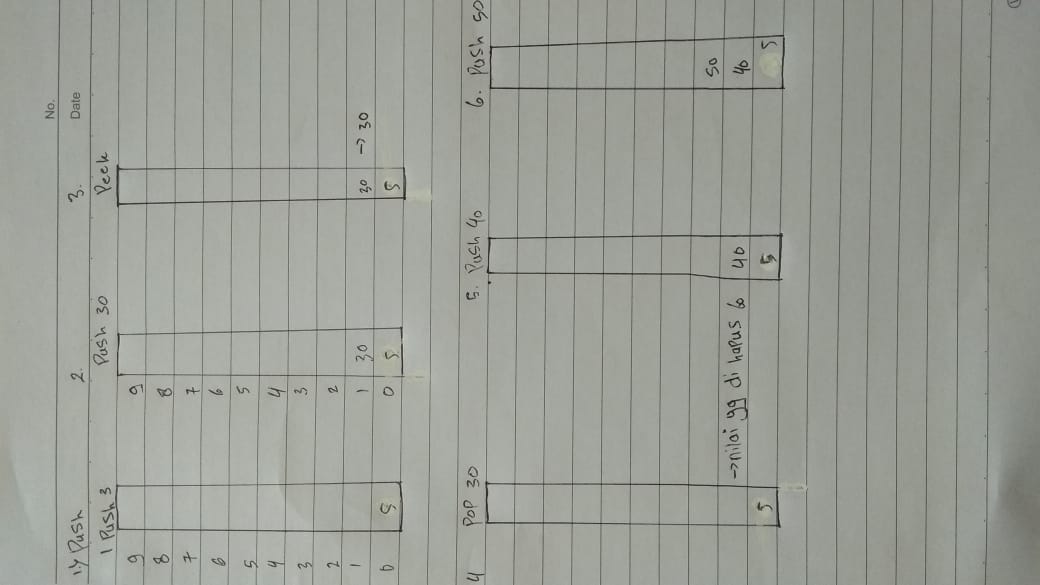 No.
Date
1.) Push
1 Push 3
9
8
7
6
5
4
3
2
1
0 5
2.
Push 30
9
8
7
6
5
4
3
2
1 30
0 5
3.
Peek
30 → 30
5
4
POP 30
→ nilai yg di hapus 60
5
5. Push 40
40
5
6. Push 50
50
40
5